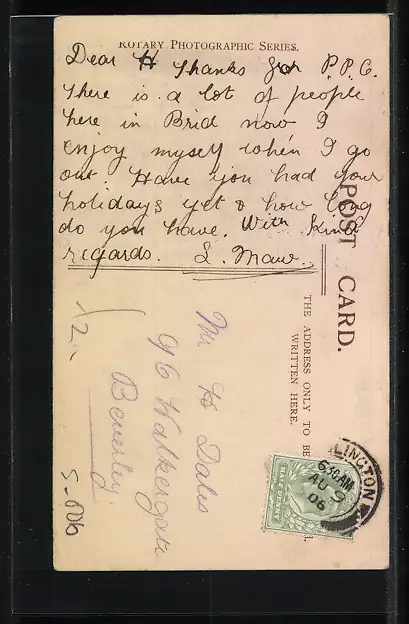 ROTARY PHOTOGRAPHIC SERIES.
Dear H Thanks for P.P.C.
There is a lot of people
here in Brid now I
enjoy myself when I go
out. Have you had your
holidays yet & how long
do you have. With Kind
regards. L. Maw.
POST CARD.
THE ADDRESS ONLY TO BE
WRITTEN HERE.
Mr H Dales
96 Walkergate
Beverley
HALF PENNY
LINGTON
630AM
AU 9
06